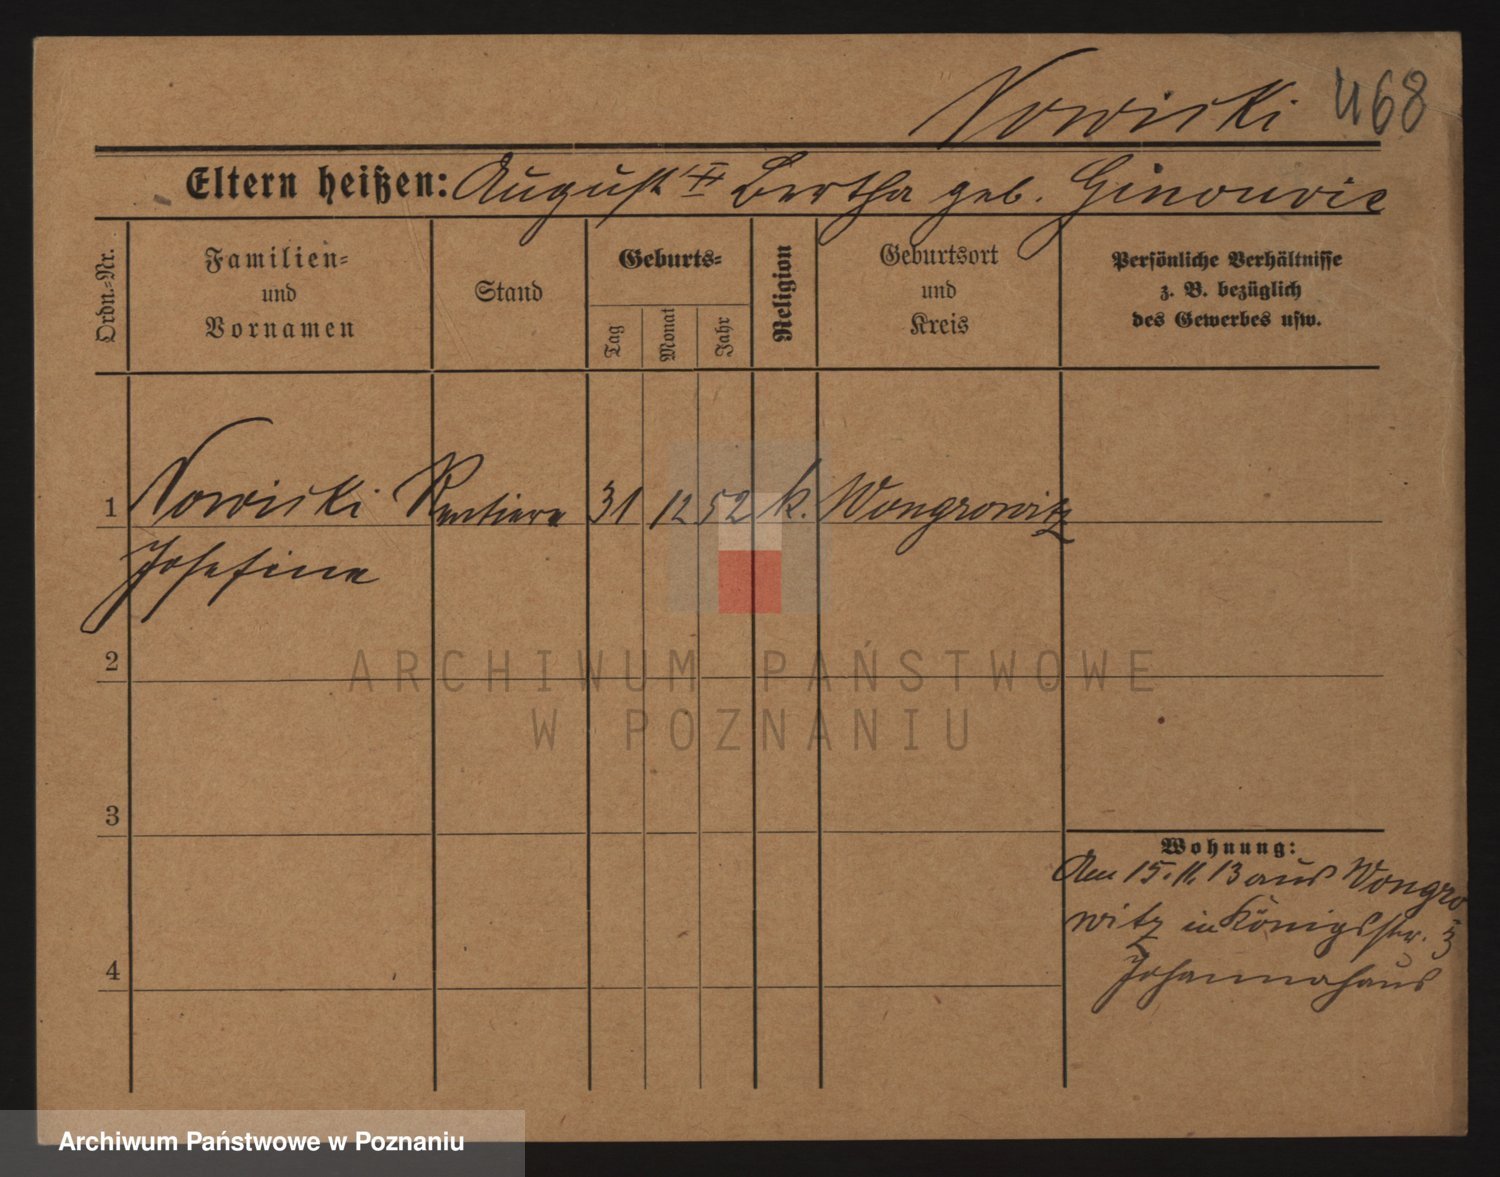 Nowiski 468
Eltern heißen: August u Bertha geb. Ginouvie
Ordn.-Nr.
Familien-
und
Vornamen
Stand
Geburts-
Tag
Monat
Jahr
Religion
Geburtsort
und
Kreis
Persönliche Verhältnisse
z. B. bezüglich
des Gewerbes usw.
1 Nowiski Rentiere 31 12 52 k. Wongrowitz
Josefine
2
3
Wohnung:
Am 15. 11. 13 aus Wongro
witz in Königsstr. 3
Johannahaus
4
ARCHIWUM PAŃSTWOWE
W POZNANIU
Archiwum Państwowe w Poznaniu